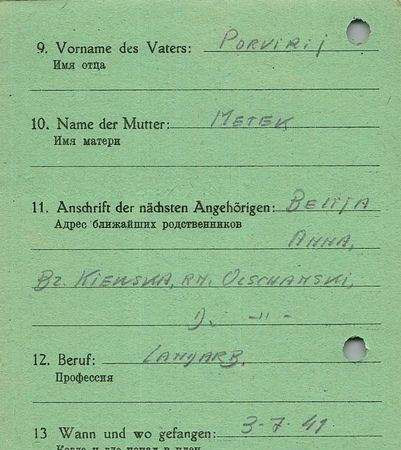 9. Vorname des Vaters: PORVIRIJ
Имя отца
10. Name der Mutter: METEK
Имя матери
11. Anschrift der nächsten Angehörigen:
Адрес ближайших родственников
ANNA,
BZ. KIEWSKA, RN. OLSCHANSKI,
D. -"-
12. Beruf: LANDARB.
Профессия
13 Wann und wo gefangen: 3-7-41.
Когда и где попал в плен